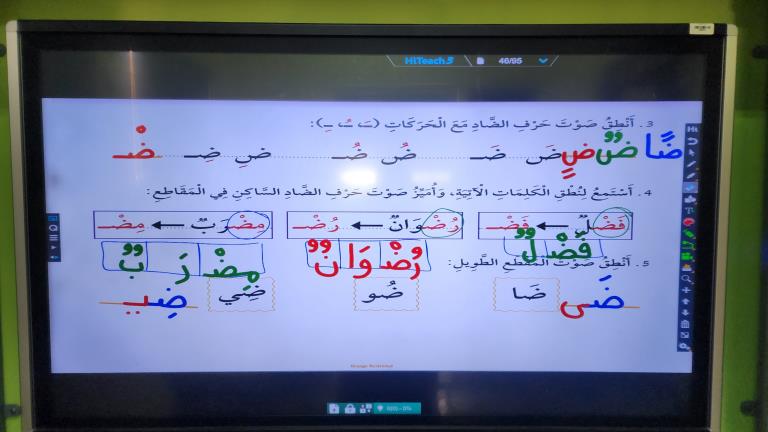 HiTeach 5 46/95
3. أَنْطِقُ صَوْتَ حَرْفِ الضَّادِ مَعَ الْحَرَكَاتِ (ـَ، ـُ، ـِ):
ضًا ضٌ ضٍ ضَ ضَـ ضُ ضُـ ضِ ضِـ ضْـ
4. أَسْتَمِعُ لِنُطْقِ الْكَلِمَاتِ الْآتِيَةِ، وَأُمَيِّزُ صَوْتَ حَرْفِ الضَّادِ السَّاكِنِ فِي الْمَقَاطِعِ:
فَضْلٌ ← فَضْـ رُضْوَانٌ ← رُضْـ مِضْرَبٌ ← مِضْـ
فَضْلٌ رُضْوَانٌ مِضْرَبٌ
5. أَنْطِقُ صَوْتَ الْمَقْطَعِ الطَّوِيلِ:
ضَى ضَا ضُو ضِي ضِيـ